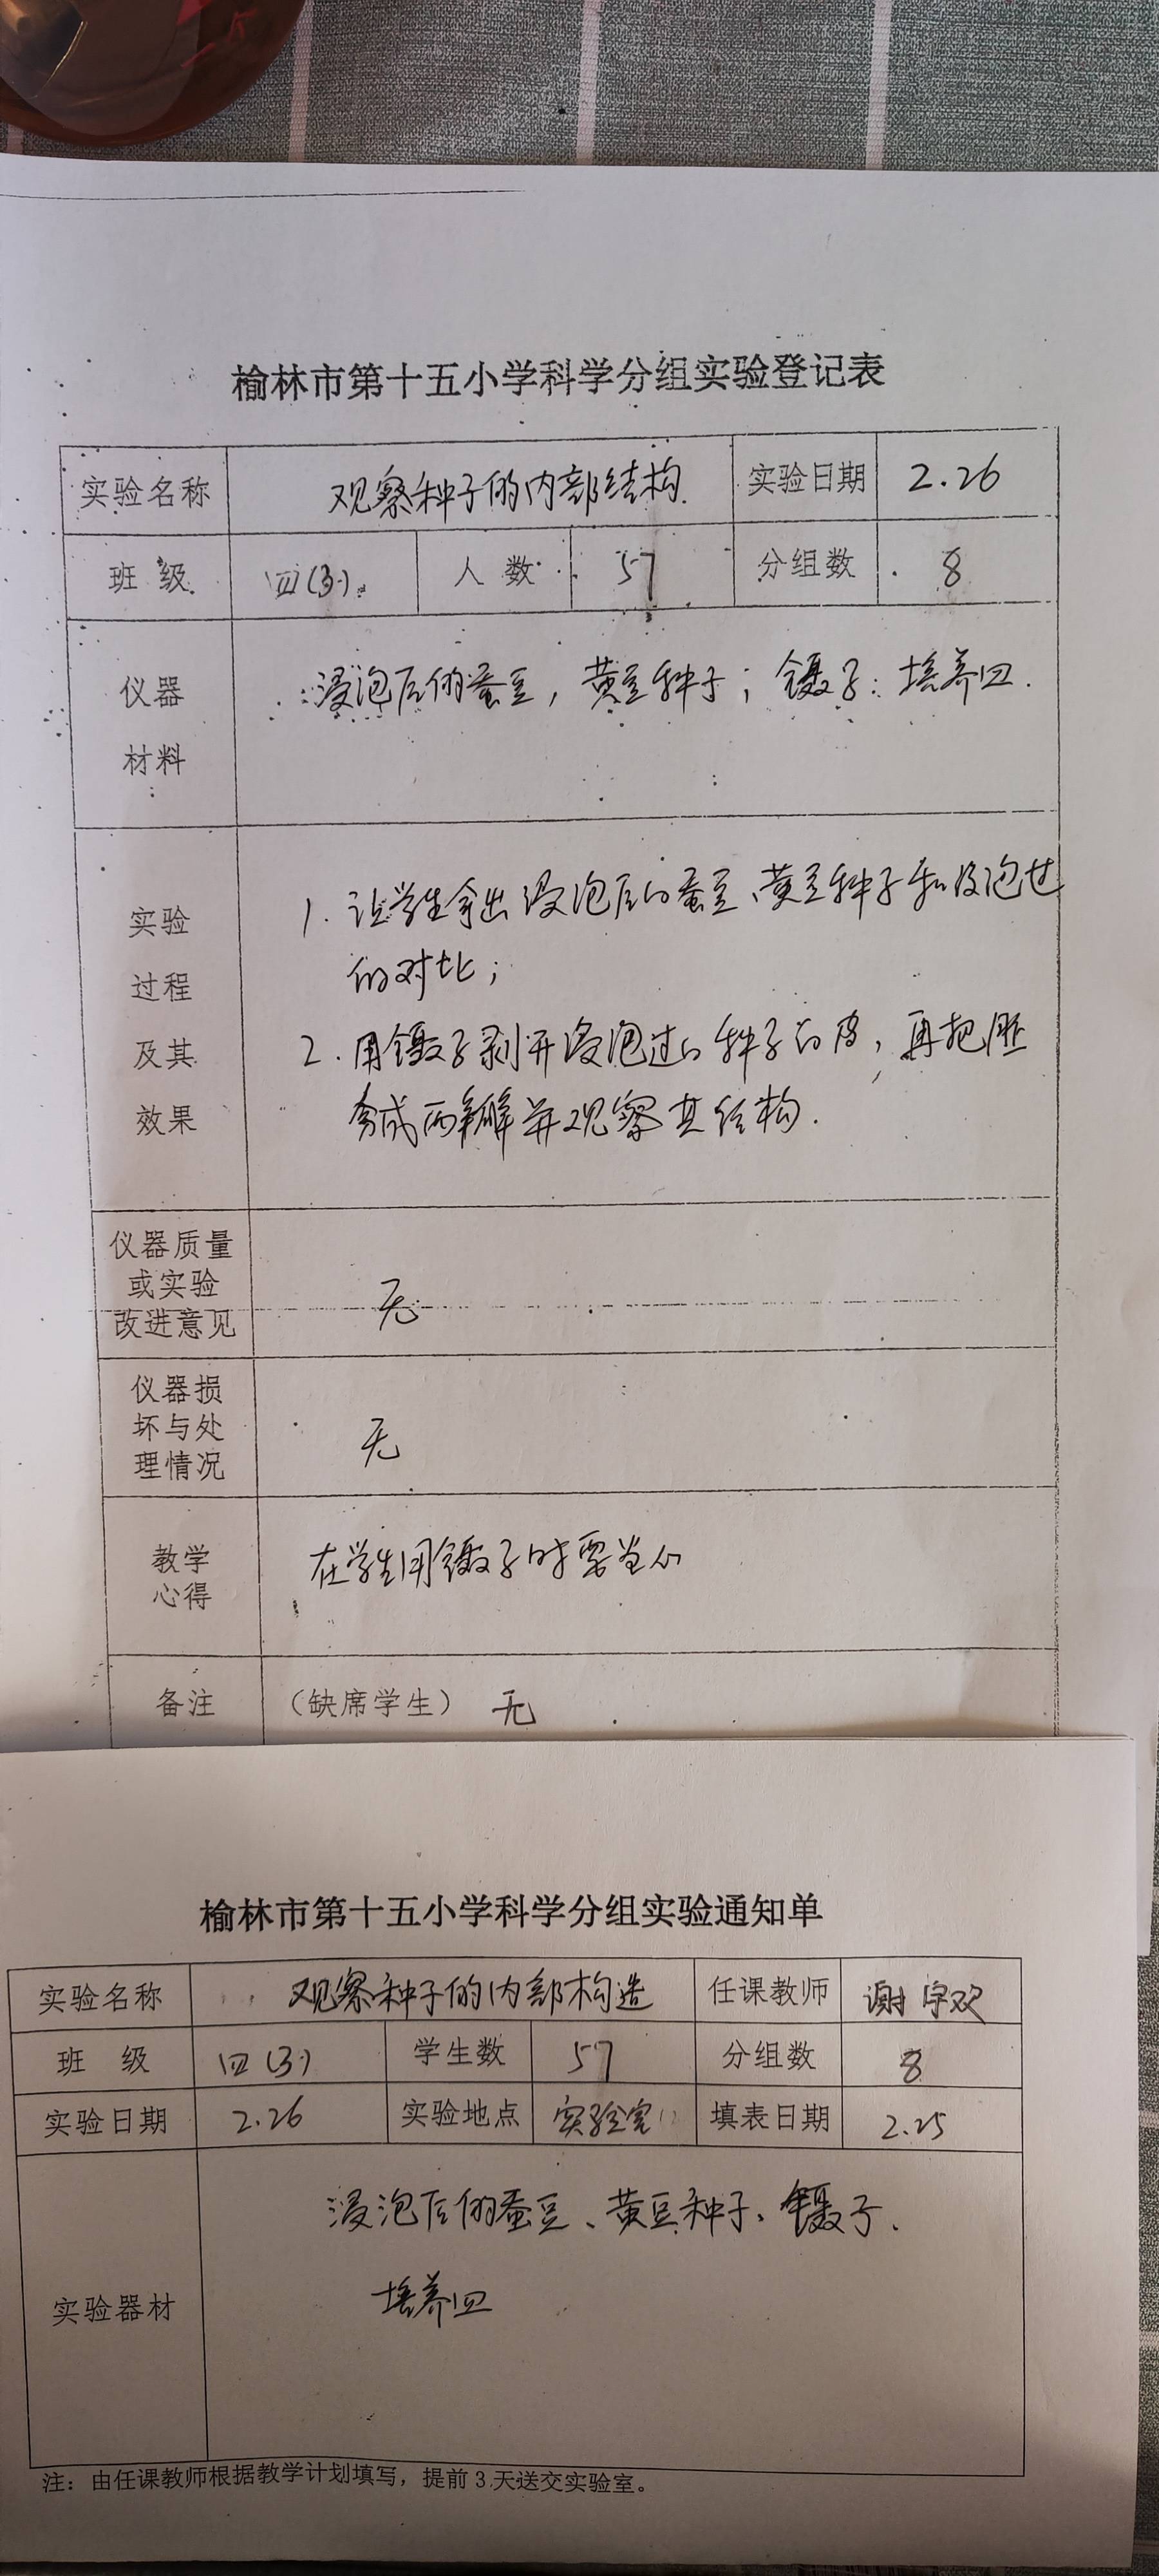 榆林市第十五小学科学分组实验登记表
实验名称 观察种子的内部结构. 实验日期 2.26
班 级 四(3) 人 数 57 分组数 8
仪器 浸泡后的蚕豆, 黄豆种子; 镊子; 培养皿.
材料
实验 1. 让学生拿出浸泡后的蚕豆、黄豆种子和没泡过
过程 的对比;
及其 2. 用镊子剥开浸泡过的种子的皮, 再把胚
效果 分成两瓣并观察其结构.
仪器质量
或实验 无
改进意见
仪器损
坏与处 无
理情况
教学 在学生用镊子时要当心
心得
备注 (缺席学生) 无
榆林市第十五小学科学分组实验通知单
实验名称 观察种子的内部构造 任课教师 谢
班 级 四(3) 学生数 57 分组数 8
实验日期 2.26 实验地点 实验室 填表日期 2.25
浸泡后的蚕豆、黄豆种子、镊子、
培养皿
实验器材
注:由任课教师根据教学计划填写,提前3天送交实验室。